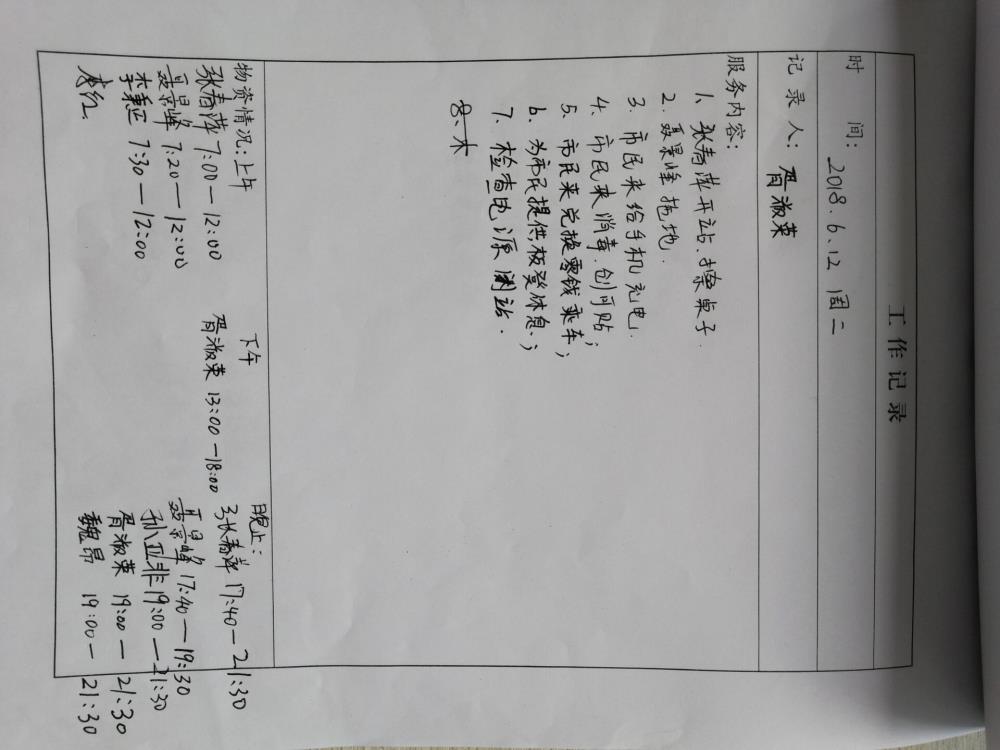 工作记录
时 间: 2018.6.12 周二
记录人: 胥淑荣
服务内容:
1、张春萍开站、擦桌子.
2、聂景峰拖地.
3、市民来给手机充电.
4、市民来消毒.创可贴;
5、市民来兑换零钱乘车;
6、为市民提供板凳休息.;
7、检查电源关站.
8、木
物资情况:上午 下午 晚上:
张春萍 7:00—12:00 胥淑荣 13:00—18:00 张春萍 17:40—21:30
聂景峰 7:20—12:00 聂景峰 17:40—19:30
李秉亚 7:30—12:00 孙亚非 19:00—21:30
李红 胥淑荣 19:00—21:30
魏昂 19:00—21:30